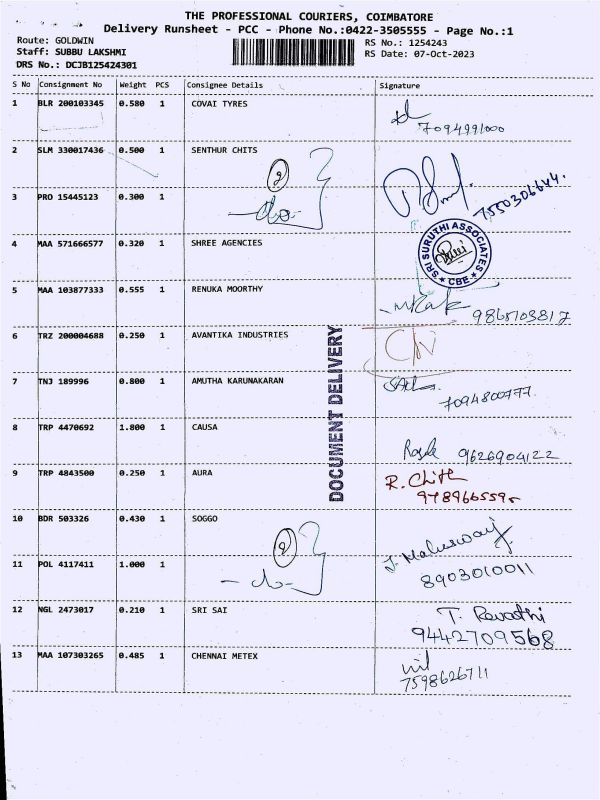 THE PROFESSIONAL COURIERS, COIMBATORE
Delivery Runsheet - PCC - Phone No.:0422-3505555 - Page No.:1
Route: GOLDWIN
RS No.: 1254243
Staff: SUBBU LAKSHMI
RS Date: 07-Oct-2023
DRS No.: DCJB125424301
S No Consignment No Weight PCS Consignee Details Signature
1 BLR 200103345 0.580 1 COVAI TYRES
7094991000
2 SLM 330017436 0.500 1 SENTHUR CHITS
2
3 PRO 15445123 0.300 1
7550306644.
-do-
4 MAA 571666577 0.320 1 SHREE AGENCIES
SRI SURUTHI ASSOCIATES
★ CBE ★
5 MAA 103877333 0.555 1 RENUKA MOORTHY
9865103817
6 TRZ 200004688 0.250 1 AVANTIKA INDUSTRIES
DOCUMENT DELIVERY
7 TNJ 189996 0.800 1 AMUTHA KARUNAKARAN
7094800777
8 TRP 4470692 1.800 1 CAUSA
9626904122
9 TRP 4843500 0.250 1 AURA
R. Chith
10 BDR 503326 0.430 1 SOGGO
2
11 POL 4117411 1.000 1
-do-
8903010011
12 NGL 2473017 0.210 1 SRI SAI
T. Revathi
9442709568
13 MAA 107303265 0.485 1 CHENNAI METEX
7598626711